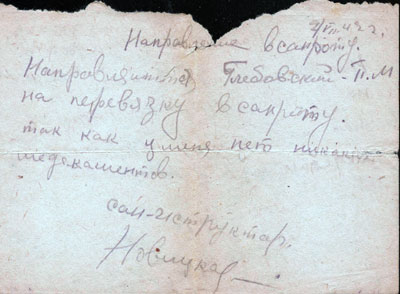 2/VIII 42 г.
Направление в санроту.
Направляится Глебовский П. М
на перевязку в санроту.
так как у меня нето никаких
медекаментов.
сан-иструктар.
Новицкая